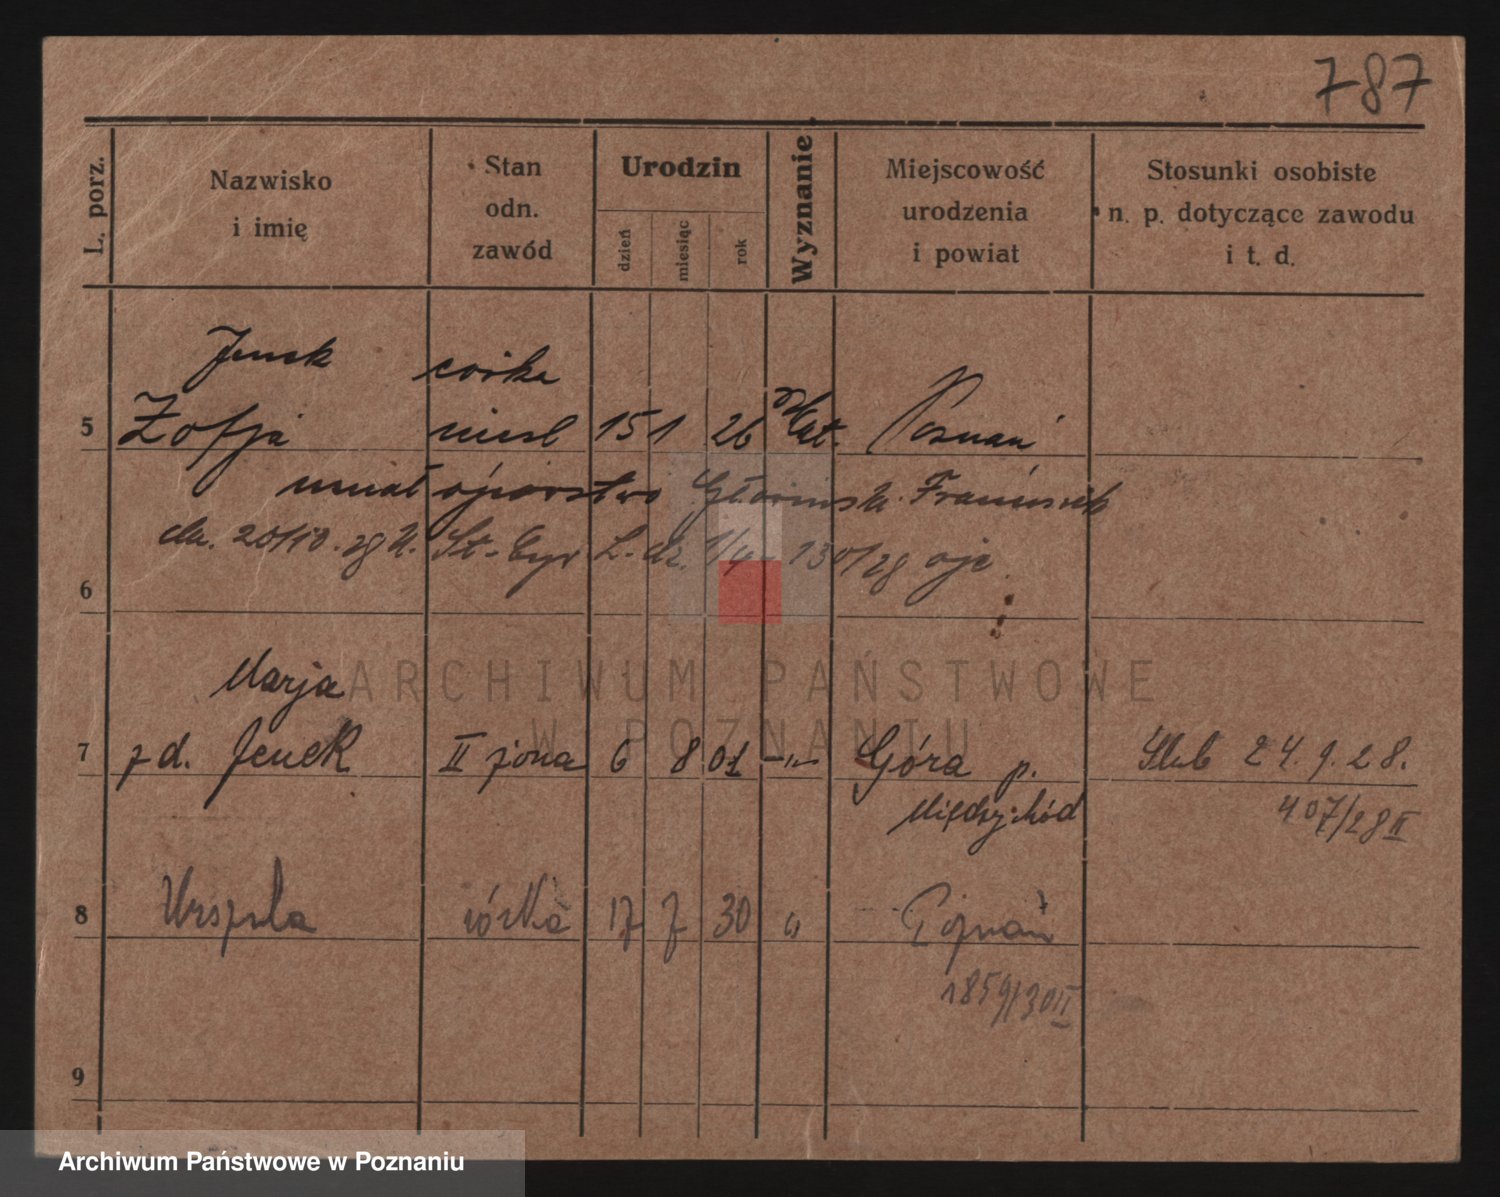 787
L. porz.
Nazwisko
i imię
Stan
odn.
zawód
Urodzin
dzień
miesiąc
rok
Wyznanie
Miejscowość
urodzenia
i powiat
Stosunki osobiste
n. p. dotyczące zawodu
i t. d.
córka
5 Zofja niesl 15 1 26 Kat. Poznań
uznał ojcostwo Franciszek
20/10. 28 St. Cyw L. dz. 130/28
6
Marja
7 z d. Jenek II żona 6 8 01 -„- Góra p. Ślub 24. 9. 28.
Międzychód 407/28 II
8 Urszula córka 17 7 30 „ Poznań
1859/30 II
9
ARCHIWUM PAŃSTWOWE
W POZNANIU
Archiwum Państwowe w Poznaniu